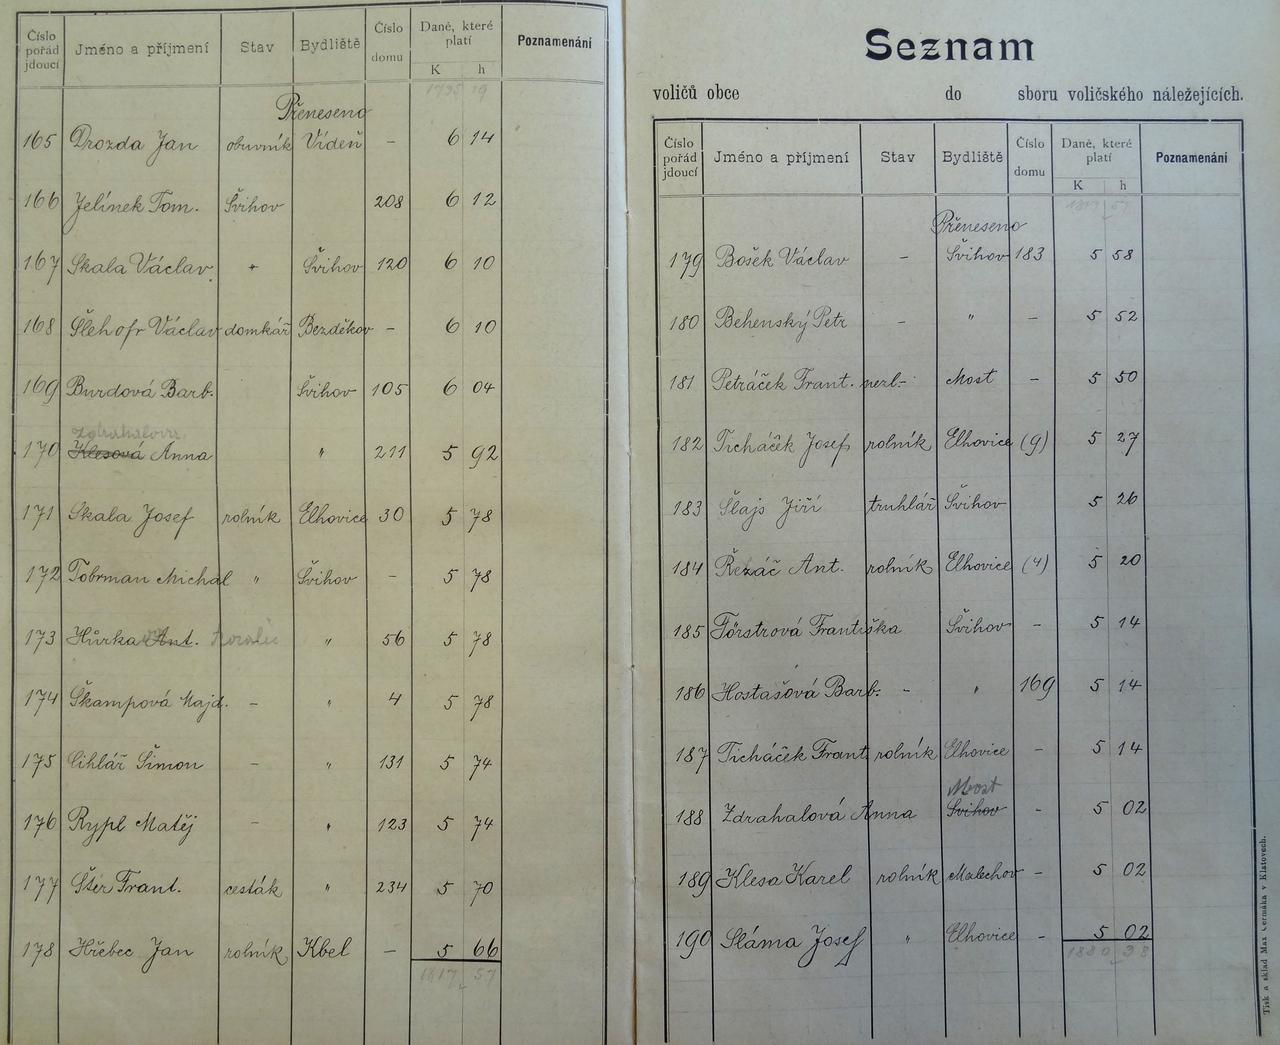 Číslo pořád jdoucí Jméno a příjmení Stav Bydliště Číslo domu Daně, které platí K h Poznamenání
1795 19
Přeneseno
165 Drozda Jan obuvník Vídeň – 6 14
166 Jelínek Tom. Švihov 208 6 12
167 Skala Václav Švihov 120 6 10
168 Šlehofr Václav domkář Bezděkov – 6 10
169 Burdová Barb. Švihov 105 6 04
Zdrahalova
170 Klesová Anna " 211 5 92
171 Skala Josef rolník Elhovice 30 5 78
172 Tobrman Michal " Švihov – 5 78
173 Hůrka Ant. " 56 5 78
174 Škampová Majd. – " 4 5 78
175 Cihlář Šimon – " 131 5 74
176 Rypl Matěj – " 123 5 74
177 Štěr Frant. cesták " 234 5 70
178 Hřebec Jan rolník Kbel – 5 66
1817 57
Seznam
voličů obce do sboru voličského náležejících.
Číslo pořád jdoucí Jméno a příjmení Stav Bydliště Číslo domu Daně, které platí K h Poznamenání
1817 57
Přeneseno
179 Bošek Václav – Švihov 183 5 58
180 Behenský Petr – " – 5 52
181 Petráček Frant. Most – 5 50
182 Ticháček Josef rolník Elhovice (9) 5 27
183 Šlajs Jiří truhlář Švihov 5 26
184 Řezáč Ant. rolník Elhovice (4) 5 20
185 Förstrová Františka Švihov – 5 14
186 Hostašová Barb. – " 169 5 14
187 Ticháček Frant. rolník Elhovice – 5 14
Most
188 Zdrahalová Anna Švihov – 5 02
189 Klesa Karel rolník Malechov – 5 02
190 Sláma Josef " Elhovice – 5 02
1880 38
Tisk a sklad Max Čermáka v Klatovech.